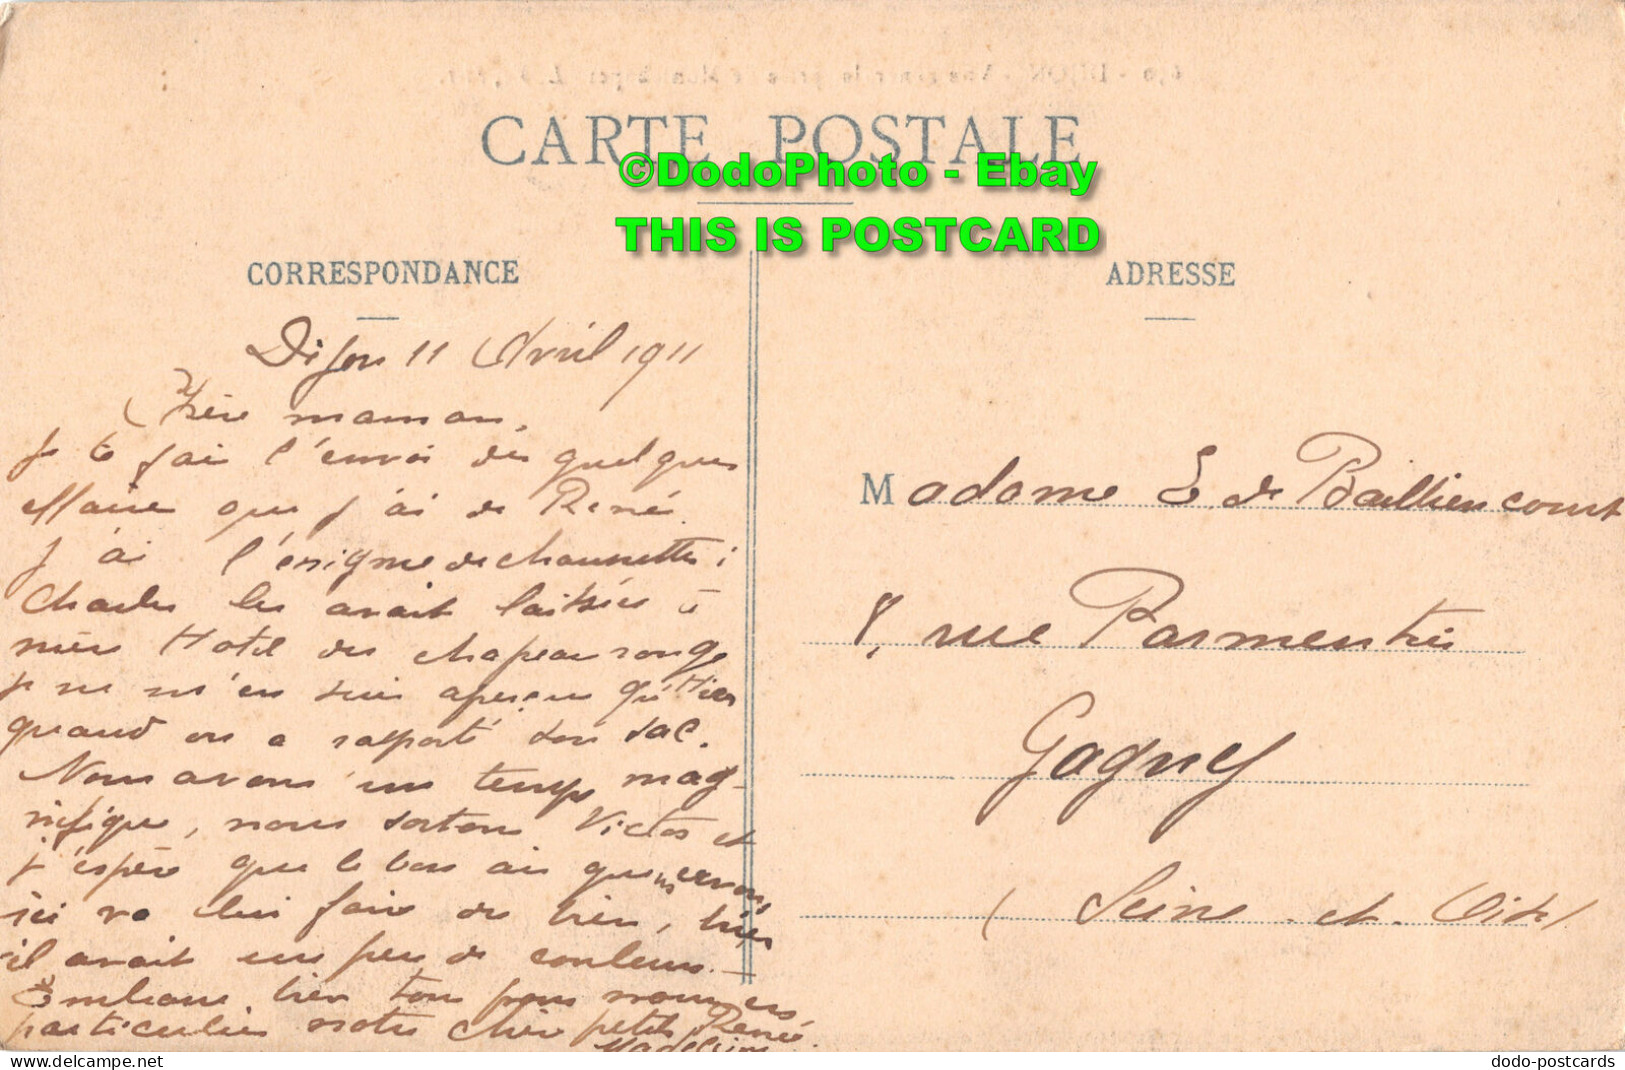 CARTE POSTALE
©DodoPhoto - Ebay
THIS IS POSTCARD
CORRESPONDANCE
Dijon 11 Avril 1911
Chère maman,
Je te fais l'envoi des quelques
affaires que j'ai de René.
J'ai l'énigme des chaussettes ;
Charles les avait laissées à
mère Hotel du chapeau rouge
je ne m'en suis aperçue qu'Hier
quand on a rapporté son sac.
Nous avons un temps mag-
nifique, nous sortons Victor et
j'espère que le bon air que nous avons
ici va lui faire du bien, hier
il avait un peu de couleurs.
Embrasse bien tous pour nous en
particulier notre cher petit René.
Madeleine
ADRESSE
Madame E. de Bailliencourt
8, rue Parmentier
Gagny
(Seine-et-Oise)
dodo-postcards
delcampe.net